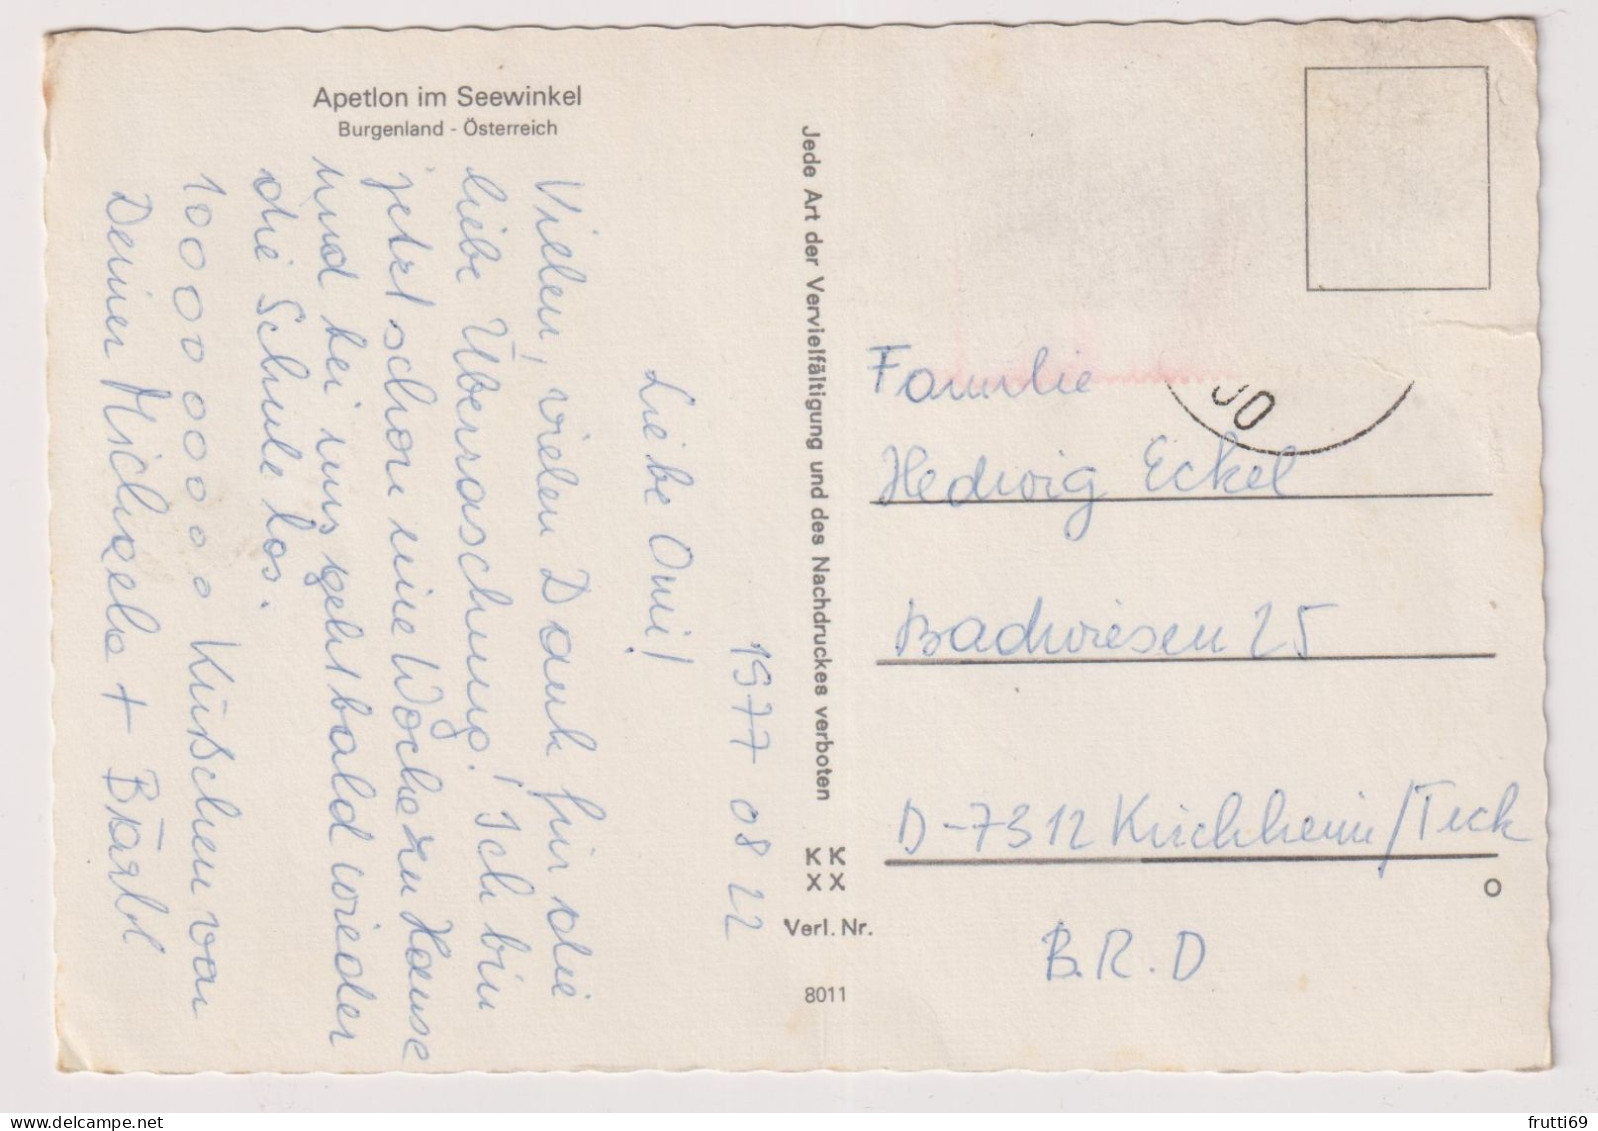 Apetlon im Seewinkel
Burgenland - Österreich
1977 08 22
Liebe Omi!
Vielen, vielen Dank für die
liebe Überraschung! Ich bin
jetzt schon eine Woche zu Hause
und bei uns geht bald wieder
die Schule los.
100000000 Küßchen von
Deiner Michaela + Bärbl
Jede Art der Vervielfältigung und des Nachdruckes verboten
K K
X X
Verl. Nr.
8011
Familie
Hedwig Eckel
Badwiesen 25
D-7312 Kirchheim/Teck
B.R.D
frutti69